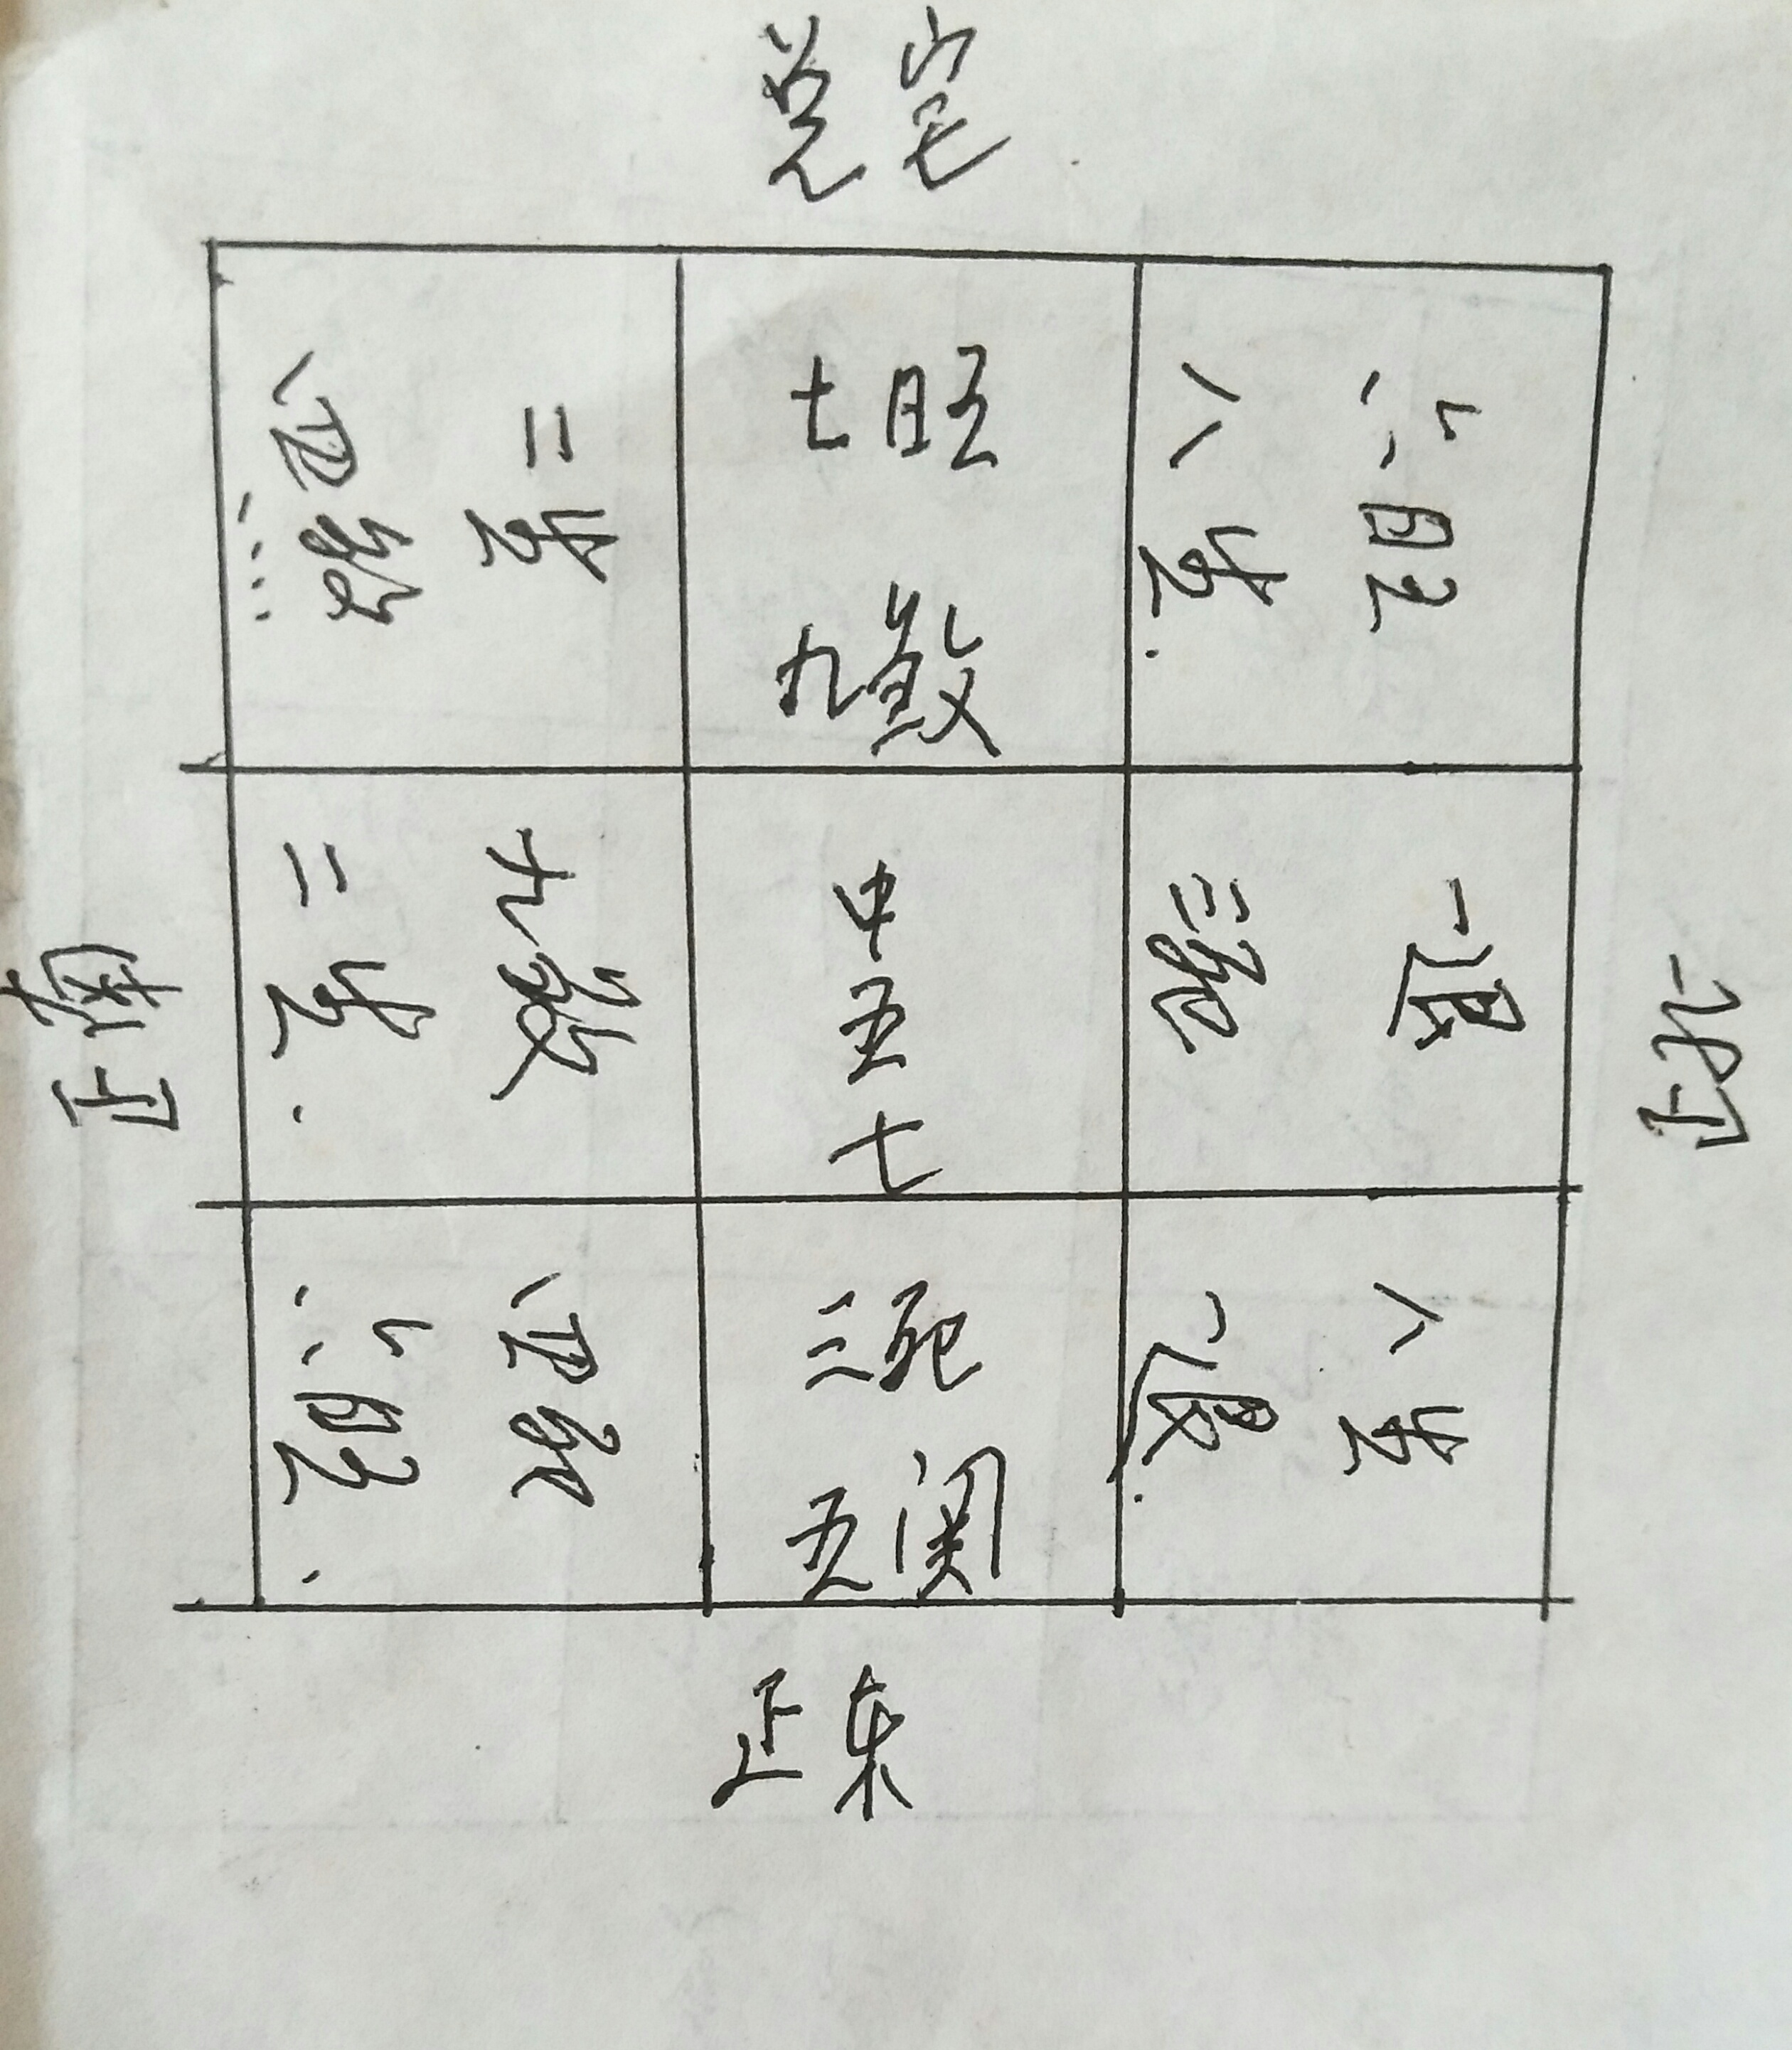 兑宅
六旺
八生
七旺
九煞
二生
四死
一退
三死
中
五
七
九煞
二生
八生
一退
三死
五关
四死
六旺
正北
正南
正东